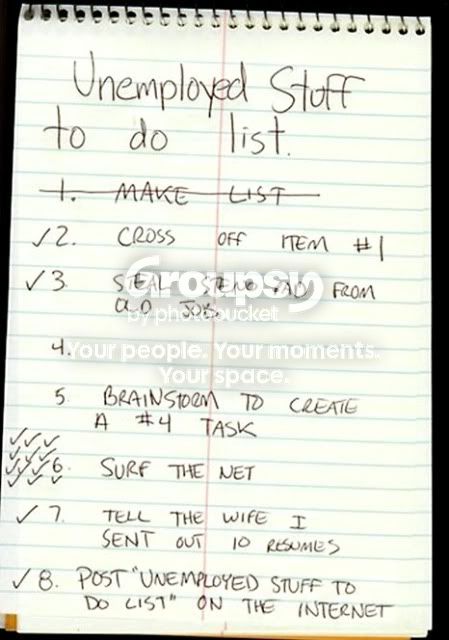 Unemployed Stuff
to do list.
1. MAKE LIST
✓2. CROSS OFF ITEM #1
✓3. STEAL STENO PAD FROM
OLD JOB.
Groupsy
by photobucket
4.
Your people. Your moments.
Your space.
5. BRAINSTORM TO CREATE
A #4 TASK
✓✓✓
✓✓✓✓
✓✓✓✓6. SURF THE NET
✓✓✓✓
✓7. TELL THE WIFE I
SENT OUT 10 RESUMES
✓8. POST "UNEMPLOYED STUFF TO
DO LIST" ON THE INTERNET